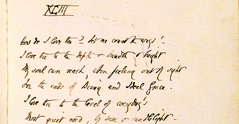 XLIII
How do I love thee? Let me count the ways!
I love thee to the depth & breadth & height
My soul can reach, when feeling out of sight
For the ends of Being and Ideal Grace.
I love thee to the level of everyday's
Most quiet need, by sun & candlelight